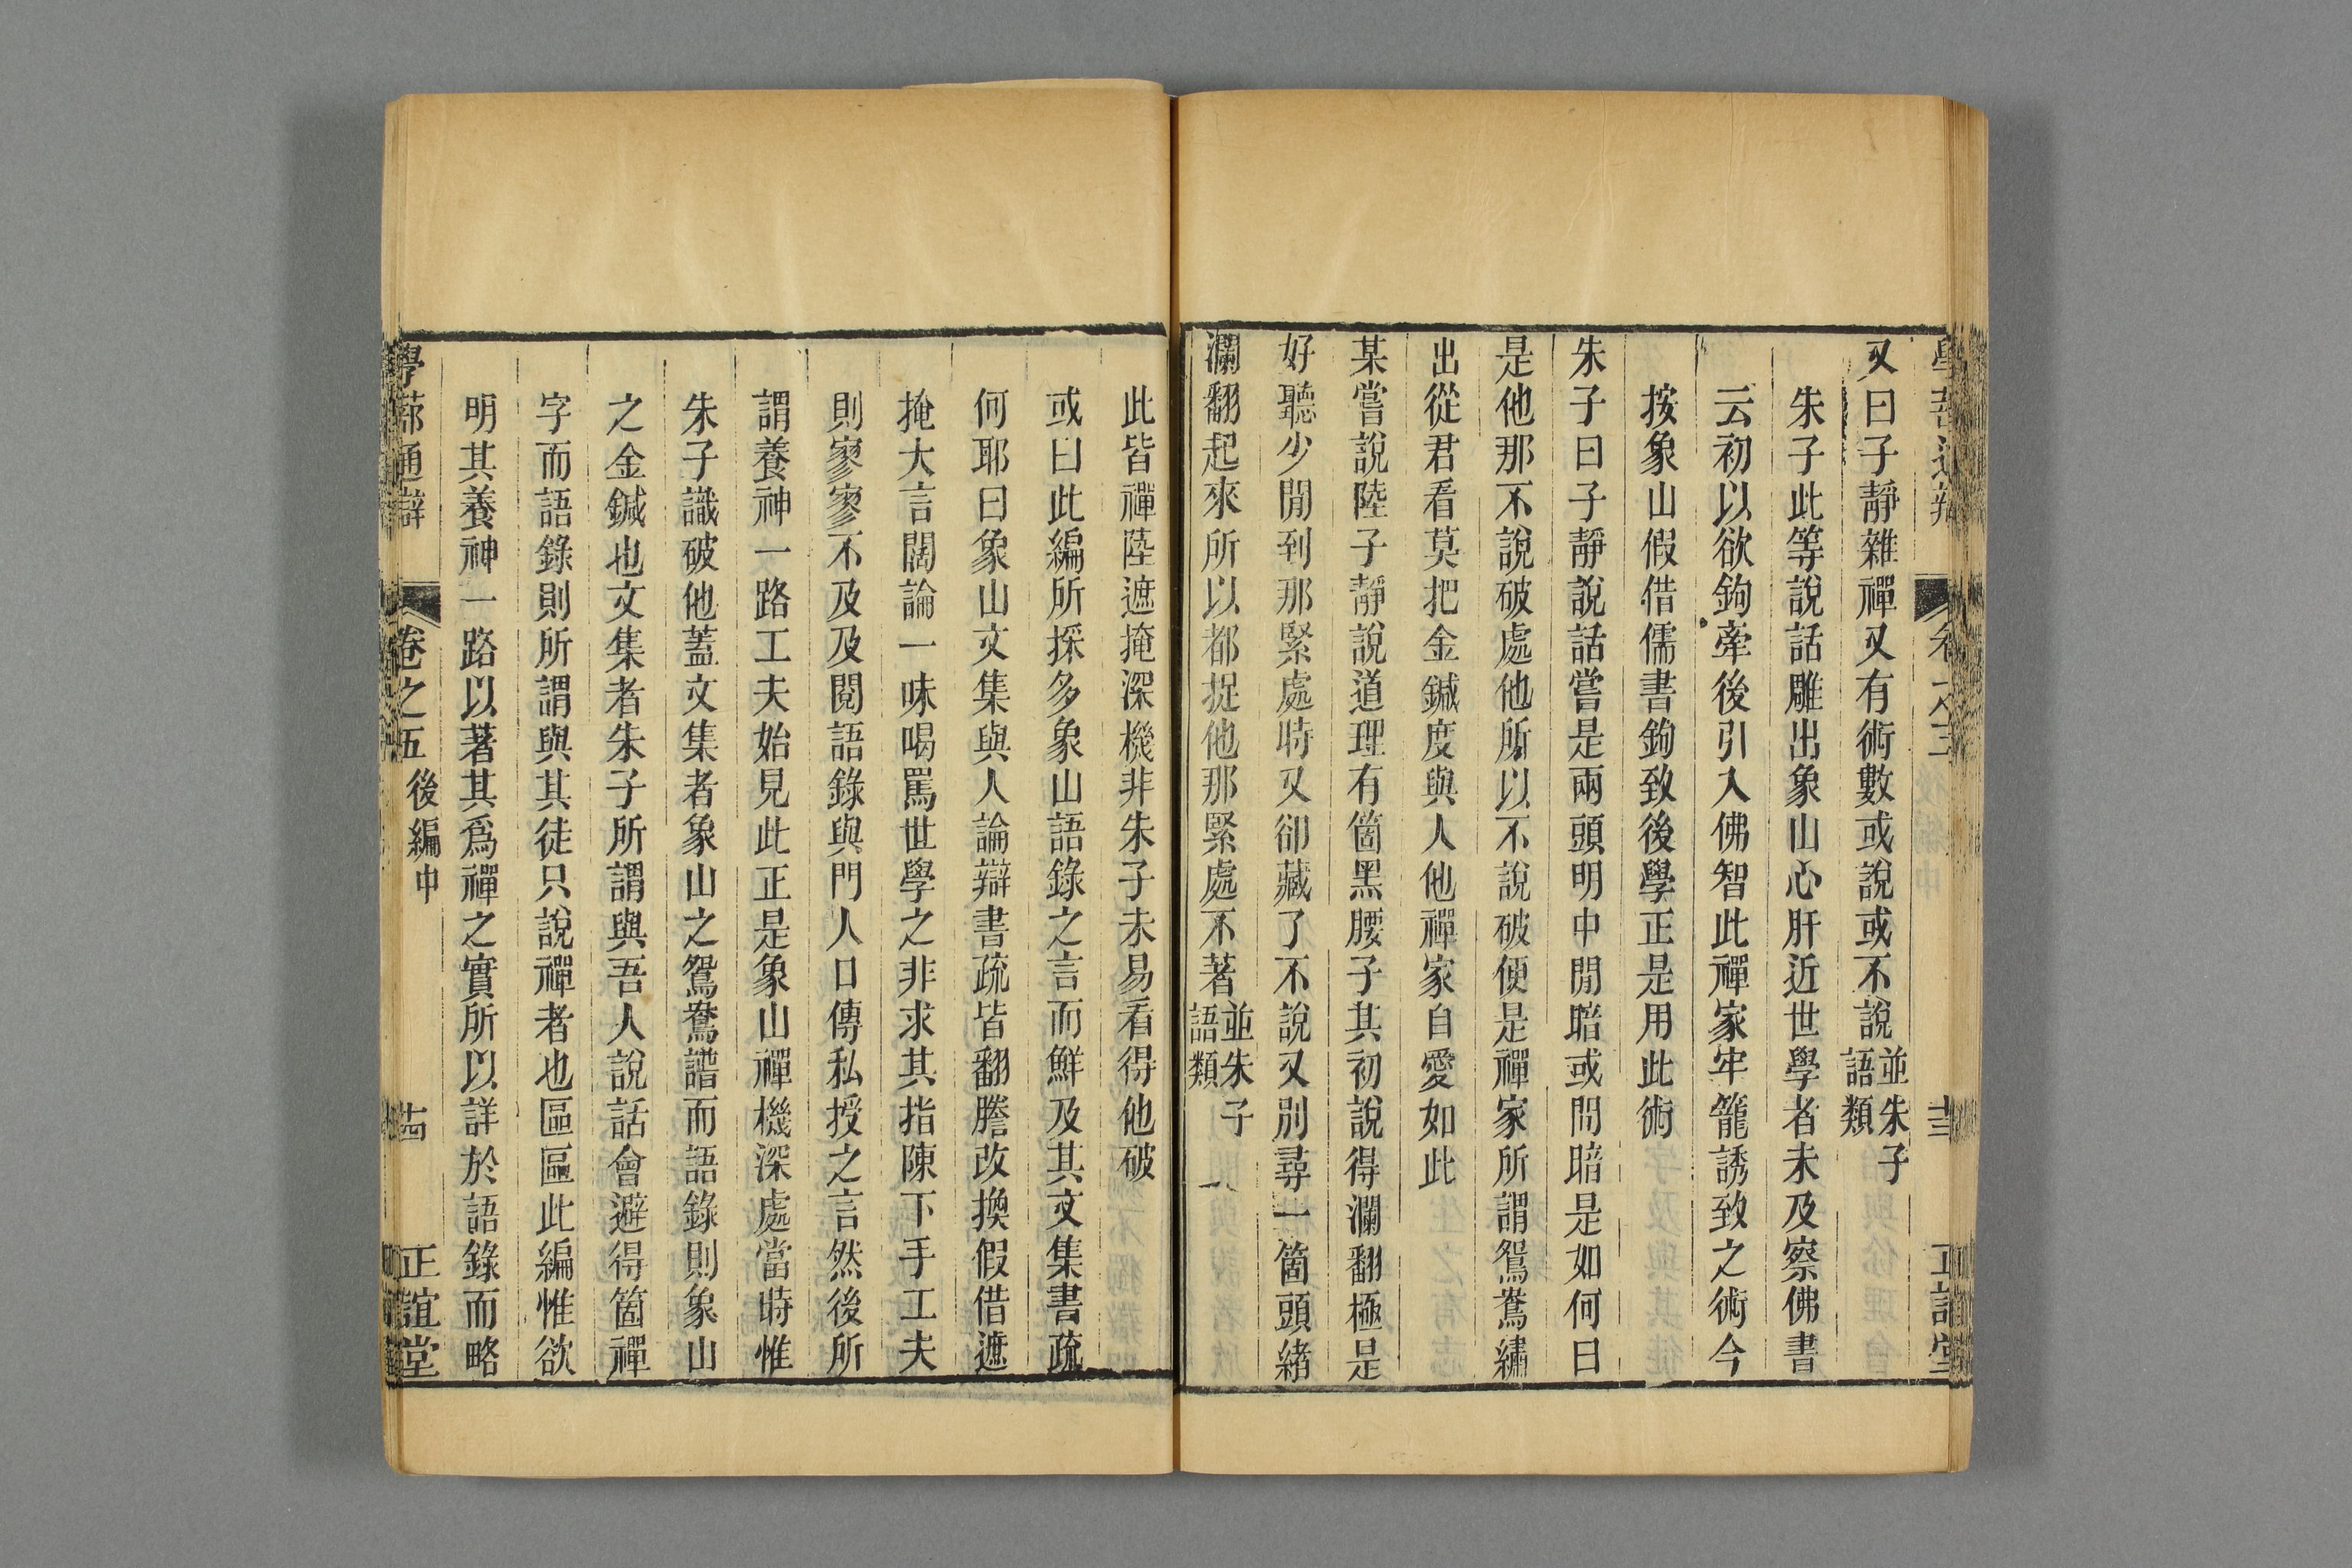 又曰子靜雜禪又有術數或說或不說並朱子語類
朱子此等說話雕出象山心肝近世學者未及察佛書
云初以欲鉤牽後引入佛智此禪家牢籠誘致之術今
按象山假借儒書鉤致後學正是用此術
朱子曰子靜說話嘗是兩頭明中閒暗或問暗是如何曰
是他那不說破處他所以不說破便是禪家所謂鴛鴦繡
出從君看莫把金鍼度與人他禪家自愛如此
某嘗說陸子靜說道理有箇黑腰子其初說得瀾翻極是
好聽少閒到那緊處時又卻藏了不說又別尋一箇頭緒
瀾翻起來所以都捉他那緊處不著並朱子語類
此皆禪陸遮掩深機非朱子未易看得他破
或曰此編所採多象山語錄之言而鮮及其文集書疏
何耶曰象山文集與人論辯書疏皆翻謄改換假借遮
掩大言闊論一味喝罵世學之非求其指陳下手工夫
則寥寥不及及閱語錄與門人口傳私授之言然後所
謂養神一路工夫始見此正是象山禪機深處當時惟
朱子識破他蓋文集者象山之鴛鴦譜而語錄則象山
之金鍼也文集者朱子所謂與吾人說話會避得箇禪
字而語錄則所謂與其徒只說禪者也區區此編惟欲
明其養神一路以著其爲禪之實所以詳於語錄而略
學蔀通辯 卷之五 後編中 十四 正誼堂